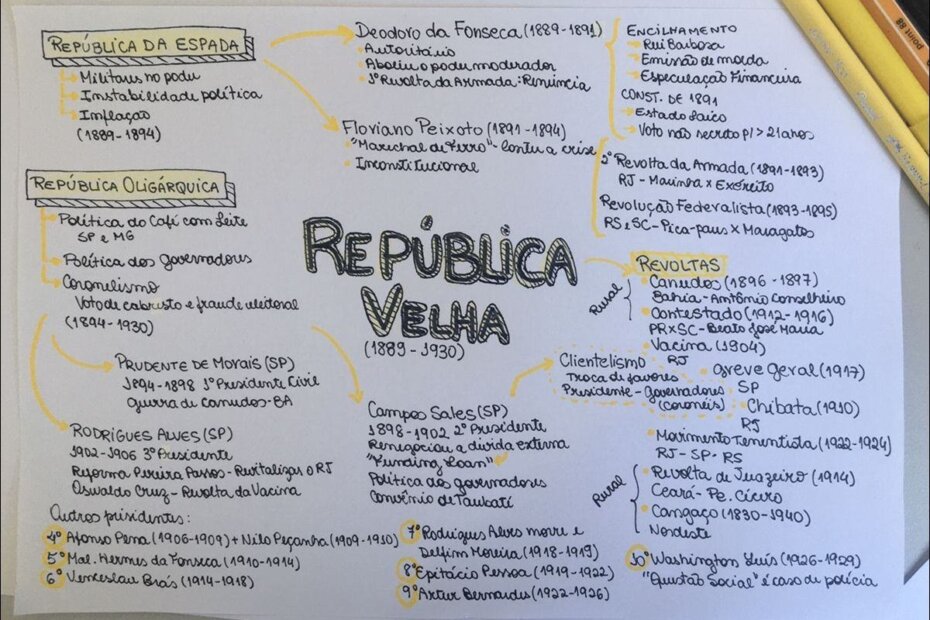 REPÚBLICA DA ESPADA
Militares no poder
Instabilidade política
Inflação
(1889-1894)
Deodoro da Fonseca (1889-1891)
Autoritário
Aboliu o poder moderador
1ª Revolta da Armada: Renúncia
Floriano Peixoto (1891-1894)
"Marechal de Ferro" - contu a crise
Inconstitucional
ENCILHAMENTO
Rui Barbosa
Emissão de moeda
Especulação Financeira
CONST. DE 1891
Estado Laico
Voto não secreto p/ > 21 anos
2ª Revolta da Armada (1891-1893)
RJ - Marinha x Exército
Revolução Federalista (1893-1895)
RS e SC - Pica-paus x Maragatos
REPÚBLICA OLIGÁRQUICA
Política do Café com Leite
SP e MG
Política dos governadores
Coronelismo
Voto de cabresto e fraude eleitoral
(1894-1930)
REPÚBLICA
VELHA
(1889-1930)
REVOLTAS
Rural
Canudos (1896-1897)
Bahia - Antônio Conselheiro
Contestado (1912-1916)
PR x SC - Beato José Maria
Vacina (1904)
RJ
Greve Geral (1917)
SP
Chibata (1910)
RJ
Movimento Tenentista (1922-1924)
RJ - SP - RS
Rural
Revolta de Juazeiro (1914)
Ceará - Pe. Cícero
Cangaço (1830-1940)
Nordeste
PRUDENTE DE MORAIS (SP)
1894-1898 1º Presidente Civil
Guerra de Canudos - BA
RODRIGUES ALVES (SP)
1902-1906 3º Presidente
Reforma Pereira Passos - Revitalizar o RJ
Oswaldo Cruz - Revolta da Vacina
Campos Sales (SP)
1898-1902 2º Presidente
Renegociou a dívida externa
"Funding Loan"
Política dos governadores
Convênio de Taubaté
Clientelismo
Troca de favores
Presidente - Governadores
(coronéis)
Outros presidentes:
4º Afonso Pena (1906-1909) + Nilo Peçanha (1909-1910)
5º Mal. Hermes da Fonseca (1910-1914)
6º Venceslau Brás (1914-1918)
7º Rodrigues Alves morre e
Delfim Moreira (1918-1919)
8º Epitácio Pessoa (1919-1922)
9º Artur Bernardes (1922-1926)
10º Washington Luís (1926-1929)
"Questão Social" é caso de polícia
point 88